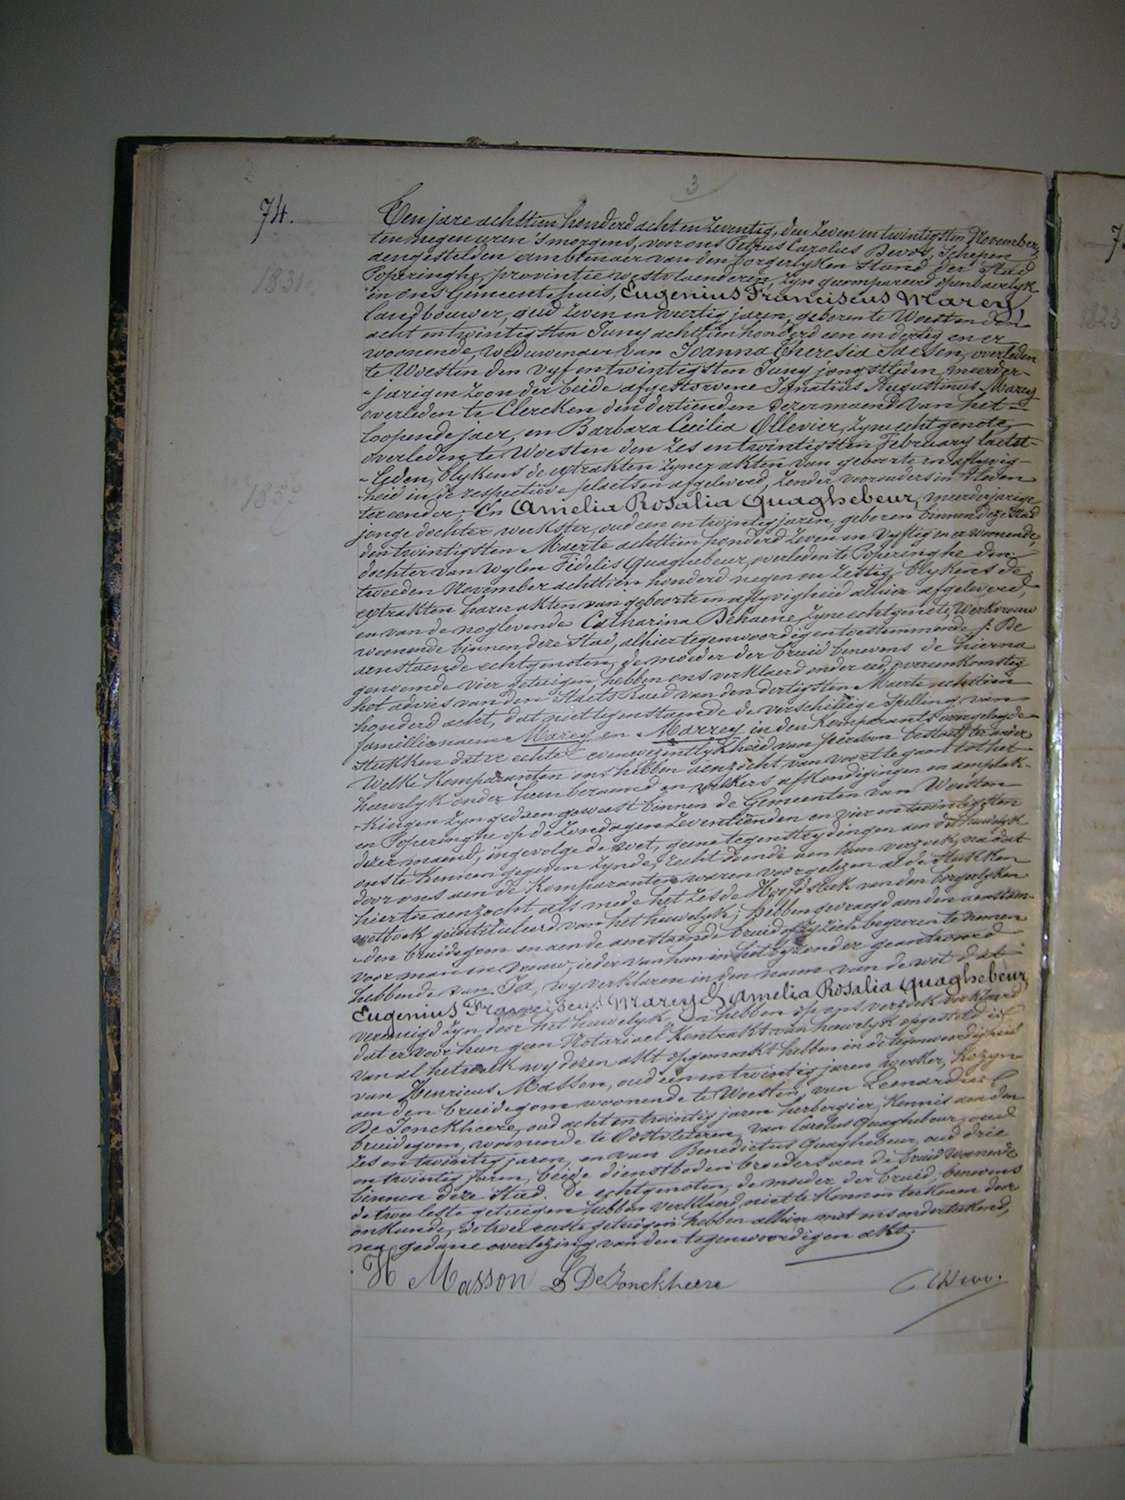 3
74.
Ten jare achttien honderd acht en zeventig, den zeven en twintigsten November
ten negen uren 's morgens, voor ons Petrus Carolus Schepen
aengestelden ambtenaer van den borgerlyken stand der stad
Poperinghe, provintie westvlaenderen, zyn gecompareerd openbaerlyk
in ons Gemeentehuis, Eugenius Franciscus Marey,
landbouwer, oud zeven en veertig jaren, geboren te Woesten den
acht en twintigsten Juny achttien honderd een en dertig en er
woonende, weduwenaer van Joanna Theresia overleden
te Woesten den vyf en twintigsten Juny jongstleden, meerder-
-jarigen zoon der beide afgestorvene Ignatius Augustinus Marey
overleden te Clercken den dertienden dezer maend van het
loopende jaer, en Barbara Cecilia Ollevier, zyne echtgenote,
overleden te Woesten den zes en twintigsten February laetst-
-leden, blykens de extrakten zynez akten van geboorte en aflyvig-
-heid in de respective plaetsen afgeleverd, zonder voorouders in
En Amelia Rosalia Quaghebeur, meerderjarige
jonge dochter, werkster, oud een en twintig jaren, geboren binnen deze stad
den twintigsten Maerte achttien honderd zeven en vyftig en er woonende,
dochter van wylen Fidelis Quaghebeur, overleden te Poperinghe den
tweeden November achttien honderd negen en zestig, blykens de
extrakten harer akten van geboorte en aflyvigheid alhier afgeleverd,
en van de noglevende Catharina Dehaene zyne echtgenote, werkvrouw
woonende binnen deze stad, alhier tegenwoordig en toestemmende. De
aenstaende echtgenoten, de moeder der bruid benevens de hierna
genoemde vier getuigen, hebben ons verklaerd onder eed, overeenkomstig
het advies van den Staets Raed van den dertigsten Maerte achttien
honderd acht, dat niettegenstaende de verschillige spelling van
familienaem Marey en Marrey in den Komparants voorgelegde
stukken dat er echter eenwezentlykheid van persoon bestaet
Welke Komparanten ons hebben aenzocht van voort te gaen tot het
huwelyk onder hem beraemd en welkers afkondigingen en aenplak-
-kingen zyn gedaen geweest binnen de Gemeenten van Woesten
en Poperinghe op de Zondagen zeventienden en vier en twintigsten
dezer maend, ingevolge de wet, geene tegenstrydingen aen dat huwelyk
ons te kennen gegeven zynde, recht doende aen hun verzoek, na dat
door ons aen de Komparanten waren voorgelezen al de stukken
hier toe aenzocht als mede het zesde Hoofdstuk van den borgerlyken
wetboek geintituleerd van het huwelyk, hebben gevraegd aen den aenstaen-
-den bruidegom en aen de aenstaende bruid of zy zich begeeren te nemen
voor man en vrouw, ieder van hun en het byzonder geantwoord
hebbende van Ja, wy verklaren in den naem van de wet dat
Eugenius Franciscus Marey & Amelia Rosalia Quaghebeur
vereenigd zyn door het huwelyk, en hebben op ons verzoek verklaerd
dat er voor hun geen Notariael Kontrakt van huwelyk opgesteld is,
van al hetwelk wy dezen akt opgemaekt hebben in de tegenwoordigheid
van Henricus Masson, oud een en twintig jaren werker, kozyn
aen den bruidegom woonende te Woesten, van Leonardus
De Jonckheere, oud acht en twintig jaren herbergier, kennis aen den
bruidegom, woonende te Oostvleteren, van Carolus Quaghebeur, oud
zes en twintig jaren, en van Benedictus Quaghebeur, oud drie
en twintig jaren, beide dienstboden broeders aen de bruid woonende
binnen deze stad. De echtgenoten, de moeder der bruid, benevens
de twee leste getuigen hebben verklaerd niet te konnen teekenen door
onkunde, de twee eerste getuigen hebben alhier met ons onderteekend,
na gedane overlezing van den tegenwoordigen akt.
H Masson L DeJonckheere